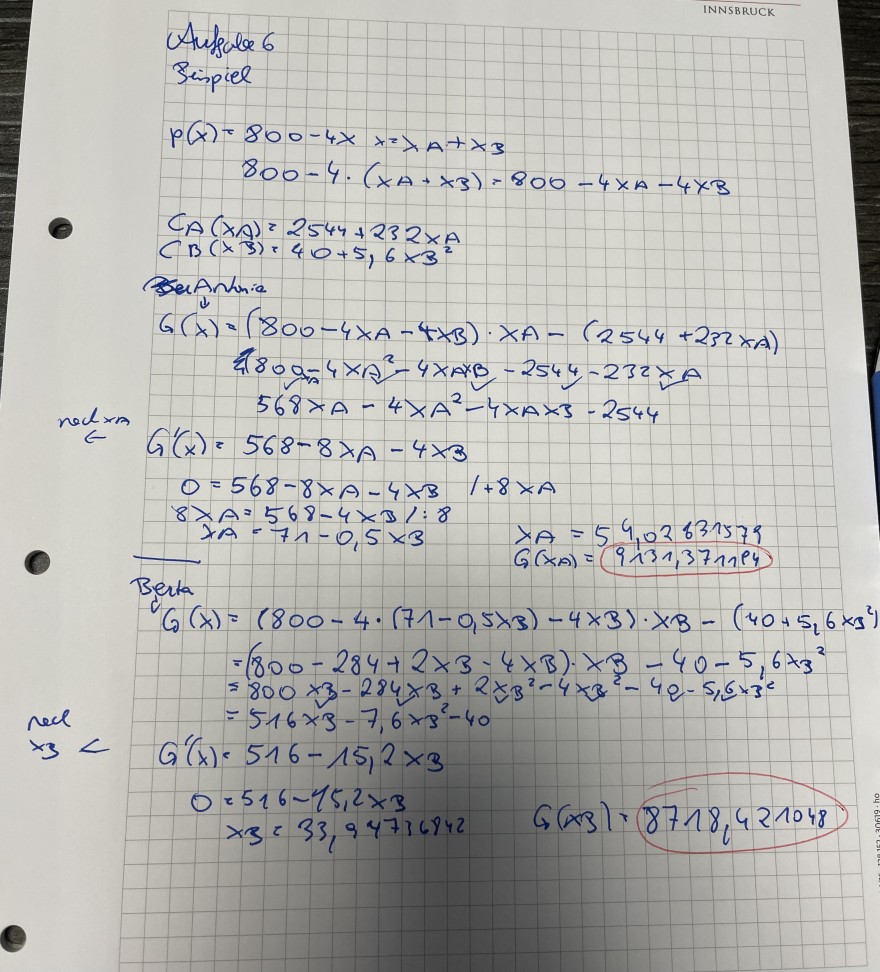 INNSBRUCK
Aufgabe 6
Beispiel
p(x) = 800 - 4x x = xA + xB
800 - 4 · (xA + xB) = 800 - 4xA - 4xB
CA(xA) = 2544 + 232xA
CB(xB) = 40 + 5,6xB²
Antonia
↓
G(x) = (800 - 4xA - 4xB) · xA - (2544 + 232xA)
800xA - 4xA² - 4xAxB - 2544 - 232xA
568xA - 4xA² - 4xAxB - 2544
nach xA
←
G'(x) = 568 - 8xA - 4xB
0 = 568 - 8xA - 4xB /+8xA
8xA = 568 - 4xB /:8
xA = 71 - 0,5xB
xA = 54,02631579
G(xA) = 9131,371194
Berta
↓
G(x) = (800 - 4·(71 - 0,5xB) - 4xB) · xB - (40 + 5,6xB²)
= (800 - 284 + 2xB - 4xB) · xB - 40 - 5,6xB²
= 800xB - 284xB + 2xB² - 4xB² - 40 - 5,6xB²
= 516xB - 7,6xB² - 40
nach
xB <
G'(x) = 516 - 15,2xB
0 = 516 - 15,2xB
xB = 33,94736842
G(xB) = 8718,421048